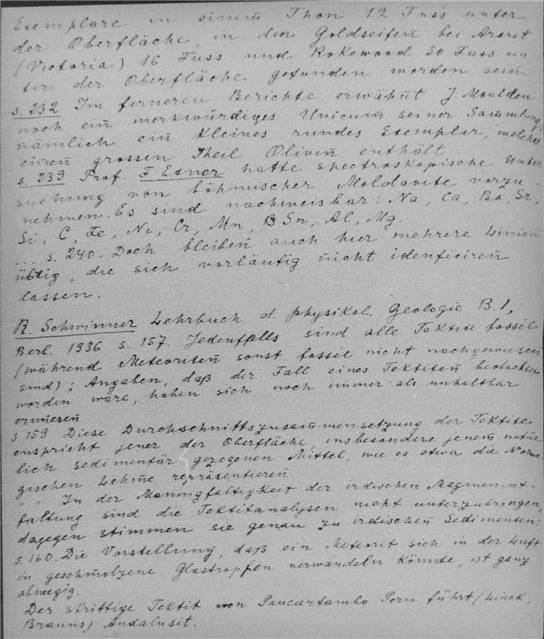 Exemplare in einem Thon 12 Fuss unter
der Oberfläche, in den Goldseifen bei Ararat
(Victoria) 16 Fuss und Rokewood 20 Fuss un-
ter der Oberfläche gefunden worden sein.
s. 232 Im ferneren Berichte erwähnt J Moulden
noch ein merkwürdiges Unicum seiner Sammlung,
nämlich ein kleines rundes Exemplar, welches
einen grossen Theil Olivin enthält
s. 239 Prof. F Exner hatte spectroskopische Unter
suchung von böhmischer Moldavite vorzu-
nehmen. Es sind nachweisbar: Na, Ca, Ba, Sr,
Si, C, Fe, Ni, Cr, Mn, B Sn, Al, Mg.
... s. 240. Doch bleiben auch hier mehrere Linien
übrig, die sich vorläufig nicht identficiren
lassen.
R. Schwinner Lehrbuch d. physikal. Geologie B. I,
Berl. 1936 s. 157. Jedenfalls sind alle Tektite fossil
(während Meteoriten sonst fossil nicht nachgewiesen
sind); Angaben, daß der Fall eines Tektiten beobachtet
worden wäre, haben sich noch immer als unhaltbar
erwiesen
s 159 Diese Durchschnittszusammensetzung der Tektite
enspricht jener der Oberfläche insbesondere jenem natür
lich sedimentär gezogenen Mittel, wie es etwa die Norwe
gischen Lehme repräsentieren.
In der Mannigfaltigkeit der irdischen Magmenent-
faltung sind die Tektitanalysen nicht unterzubringen,
dagegen stimmen sie genau zu irdischen Sedimenten.
s. 160. Die Vorstellung, daß ein Meteorit sich in der Luft
in geschmolzene Glastropfen verwandeln könnte, ist ganz
abwegig.
Der strittige Tektit von Paucartambo Peru führt (Linck,
Brauns) Andalusit.